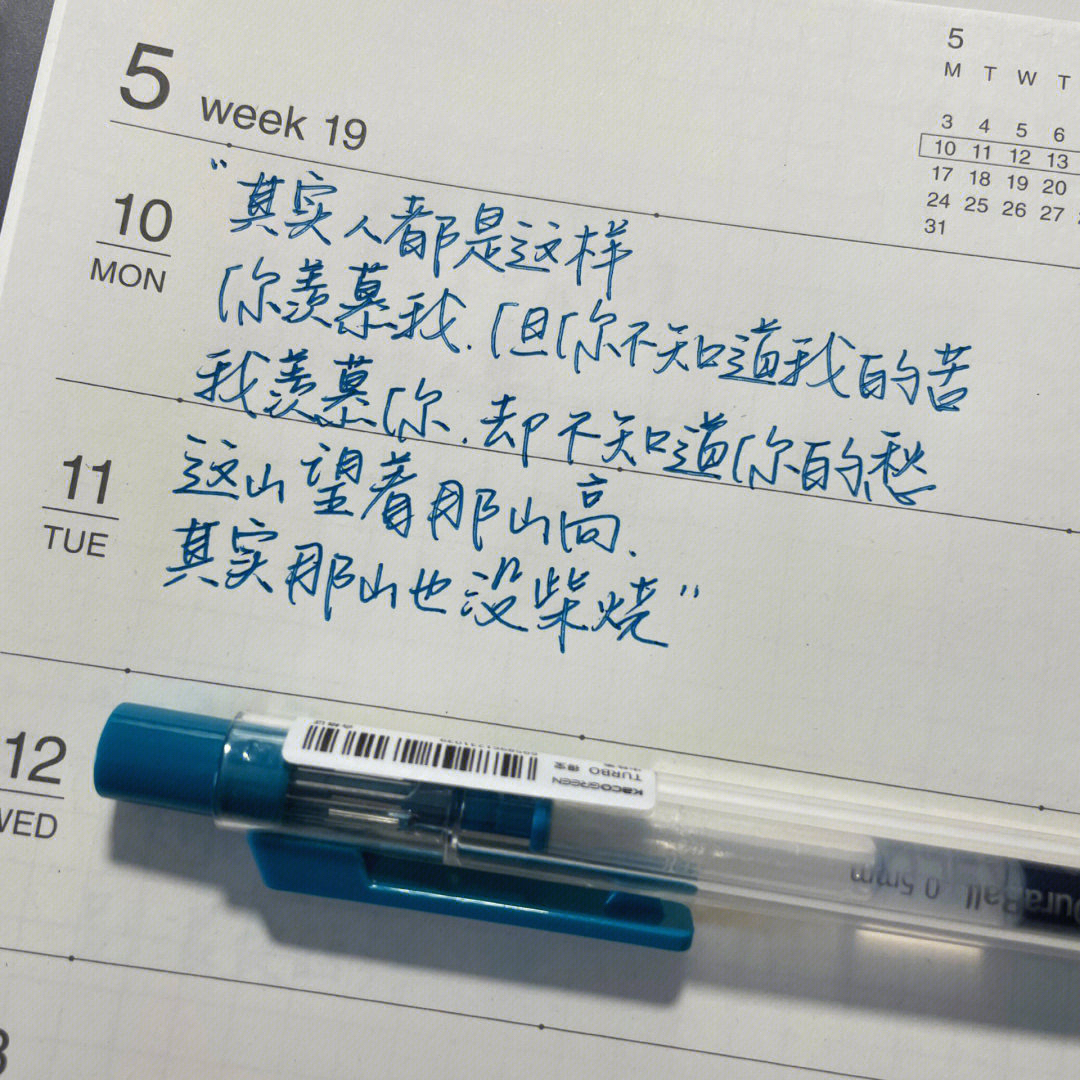 5 week 19
5
M T W T
3 4 5 6
10 11 12 13
17 18 19 20
24 25 26 27
31
10
MON
“其实人都是这样
你羡慕我.但你不知道我的苦
我羡慕你.却不知道你的愁
11
TUE
这山望着那山高.
其实那山也没柴烧”
12
WED
KACOGREEN
TURBO
DuraBall 0.5mm